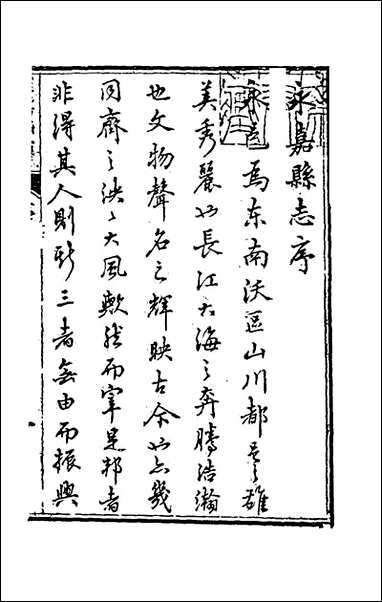 永嘉縣志序
永嘉爲东南沃區山川都邑之雄
美秀麗如長江大海之奔騰浩瀚
也文物聲名之輝映古今如亦幾
同齊之泱〻大風歟然而宰是邦者
非得其人則斯三者無由而振興